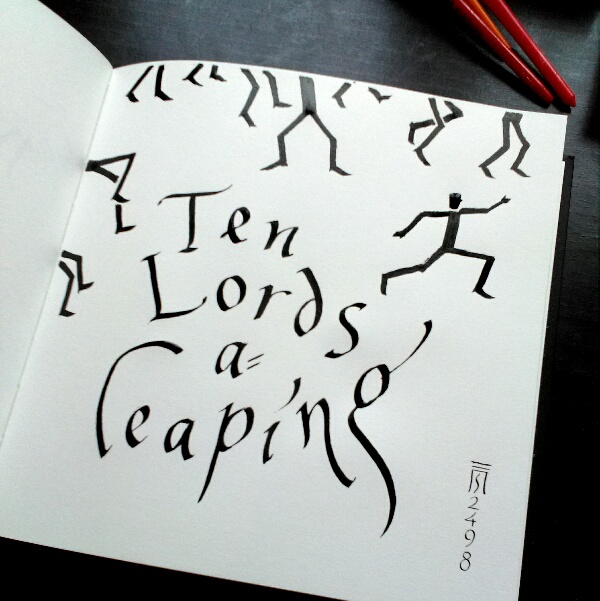 Ten
Lords
a=
leaping
2498